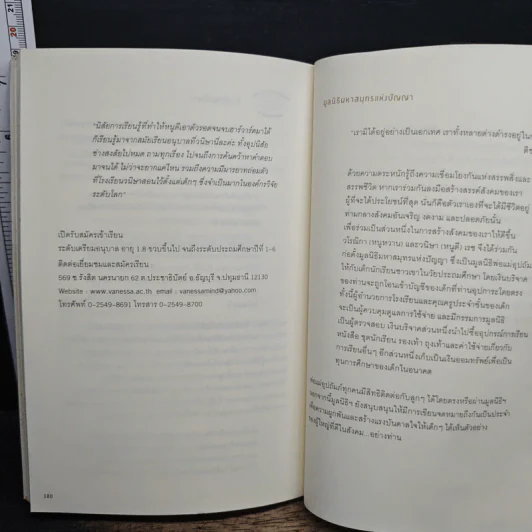 "นิสัยการเรียนรู้ที่ทำให้หนูดีเอาตัวรอดจนจบฮาร์วาร์ดมาได้
ก็เรียนรู้มาจากสมัยเรียนอนุบาลที่วนิษานี่ละค่ะ ทั้งอุปนิสัย
ช่างสงสัยไปหมด ถามทุกเรื่อง ไปจนถึงการค้นคว้าหาคำตอบ
มาจนได้ ไม่ว่าจะยากแค่ไหน รวมถึงความมีมารยาทอ่อนตัว
ที่โรงเรียนวนิษาสอนไว้ตั้งแต่เด็กๆ ซึ่งจำเป็นมากในองค์กรวิจัย
ระดับโลก"
เปิดรับสมัครเข้าเรียน
ระดับเตรียมอนุบาล อายุ 1.8 ขวบขึ้นไป จนถึงระดับประถมศึกษาปีที่ 1-6
ติดต่อเยี่ยมชมและสมัครเรียน :
569 ซ.รังสิต นครนายก 62 ต.ประชาธิปัตย์ อ.ธัญบุรี จ.ปทุมธานี 12130
Website : www.vanessa.ac.th email : vanessamind@yahoo.com
โทรศัพท์ 0-2549-8691 โทรสาร 0-2549-8700
180
มูลนิธิมหาสมุทรแห่งปัญญา
"เรามิได้อยู่อย่างเป็นเอกเทศ เราทั้งหลายต่างดำรงอยู่ใน
ด้วยความตระหนักรู้ถึงความเชื่อมโยงกันแห่งสรรพสิ่งและ
สรรพชีวิต หากเราร่วมกันลงมือสร้างสรรค์สังคมของเรา
ผู้ที่จะได้ประโยชน์ที่สุด นั่นก็คือตัวเราเองที่จะได้มีชีวิตอยู่
ท่ามกลางสังคมอันเจริญ งดงาม และปลอดภัยนั้น
เพื่อร่วมเป็นส่วนหนึ่งในการสร้างสังคมของเราให้ดีขึ้น
วโรณิกา (หนูหวาน) และวนิษา (หนูดี) เรซ จึงได้ร่วมกัน
ก่อตั้งมูลนิธิมหาสมุทรแห่งปัญญา ซึ่งเป็นมูลนิธิพ่อแม่อุปถัมภ์
ให้กับเด็กนักเรียนชาวเขาในวัยประถมศึกษา โดยเงินบริจาค
ของท่านจะถูกโอนเข้าบัญชีของเด็กที่ท่านอุปการะโดยตรง
ทั้งนี้ผู้อำนวยการโรงเรียนและคุณครูประจำชั้นของเด็ก
จะเป็นผู้ควบคุมดูแลการใช้จ่าย และมีกรรมการมูลนิธิ
เป็นผู้ตรวจสอบ เงินบริจาคส่วนหนึ่งนำไปซื้ออุปกรณ์การเรียน
หนังสือ ชุดนักเรียน รองเท้า ถุงเท้าและค่าใช้จ่ายเกี่ยวกับ
การเรียนอื่นๆ อีกส่วนหนึ่งเก็บเป็นเงินออมทรัพย์เพื่อเป็น
ทุนการศึกษาของเด็กในอนาคต
พ่อแม่อุปถัมภ์ทุกคนมีสิทธิติดต่อกับลูกๆ ได้โดยตรงหรือผ่านมูลนิธิฯ
นอกจากนี้มูลนิธิฯ ยังสนับสนุนให้มีการเขียนจดหมายถึงกันเป็นประจำ
เพื่อความผูกพันและสร้างแรงบันดาลใจให้เด็กๆ ได้เห็นตัวอย่าง
ผู้ใหญ่ที่ดีในสังคม...อย่างท่าน